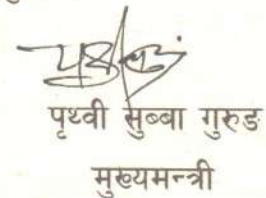 पृथ्वी सुब्बा गुरुङ
मुख्यमन्त्री